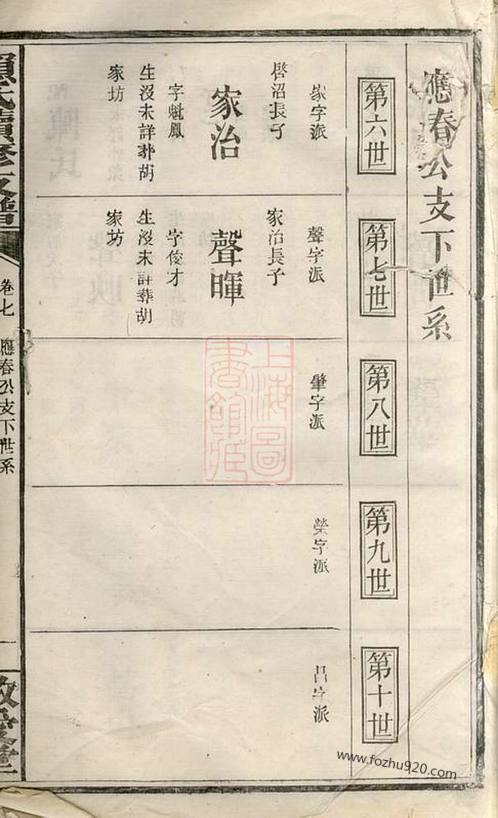 應春公支下世系
第六世
家字派
啓沼長子
家治
字魁鳳
生沒未詳葬胡
家坊
第七世
聲字派
家治長子
聲暉
字俊才
生沒未詳葬胡
家坊
第八世
肇字派
第九世
榮字派
第十世
昌字派
氏續修支譜
卷七
應春公支下世系
一
敦愛堂
上海圖
書館藏
www.fozhu920.com